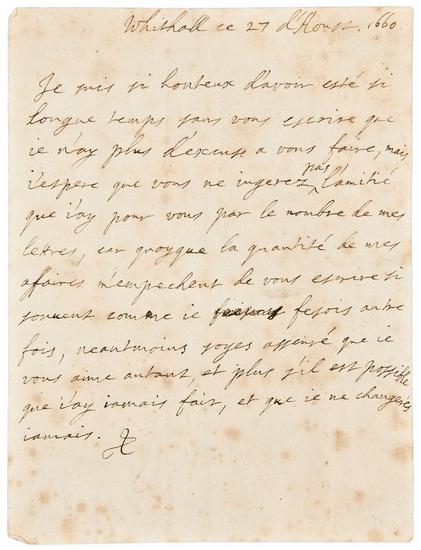 Whithall ce 27 d'Aoust. 1660
Je suis si honteux d'avoir esté si
longue temps sans vous escrire que
ie n'ay plus d'excuse a vous faire, mais
i'espere que vous ne iugerez pas l'amitié
que i'ay pour vous par le nombre de mes
letres, car quoyque la quantité de mes
affaires m'empechent de vous escrire si
souuent comme ie fesois autre
fois, neantmoins soyes asseuré que ie
vous aime autant, et plus s'il est possible
que i'ay iamais fait, et que ie ne changeres
iamais.